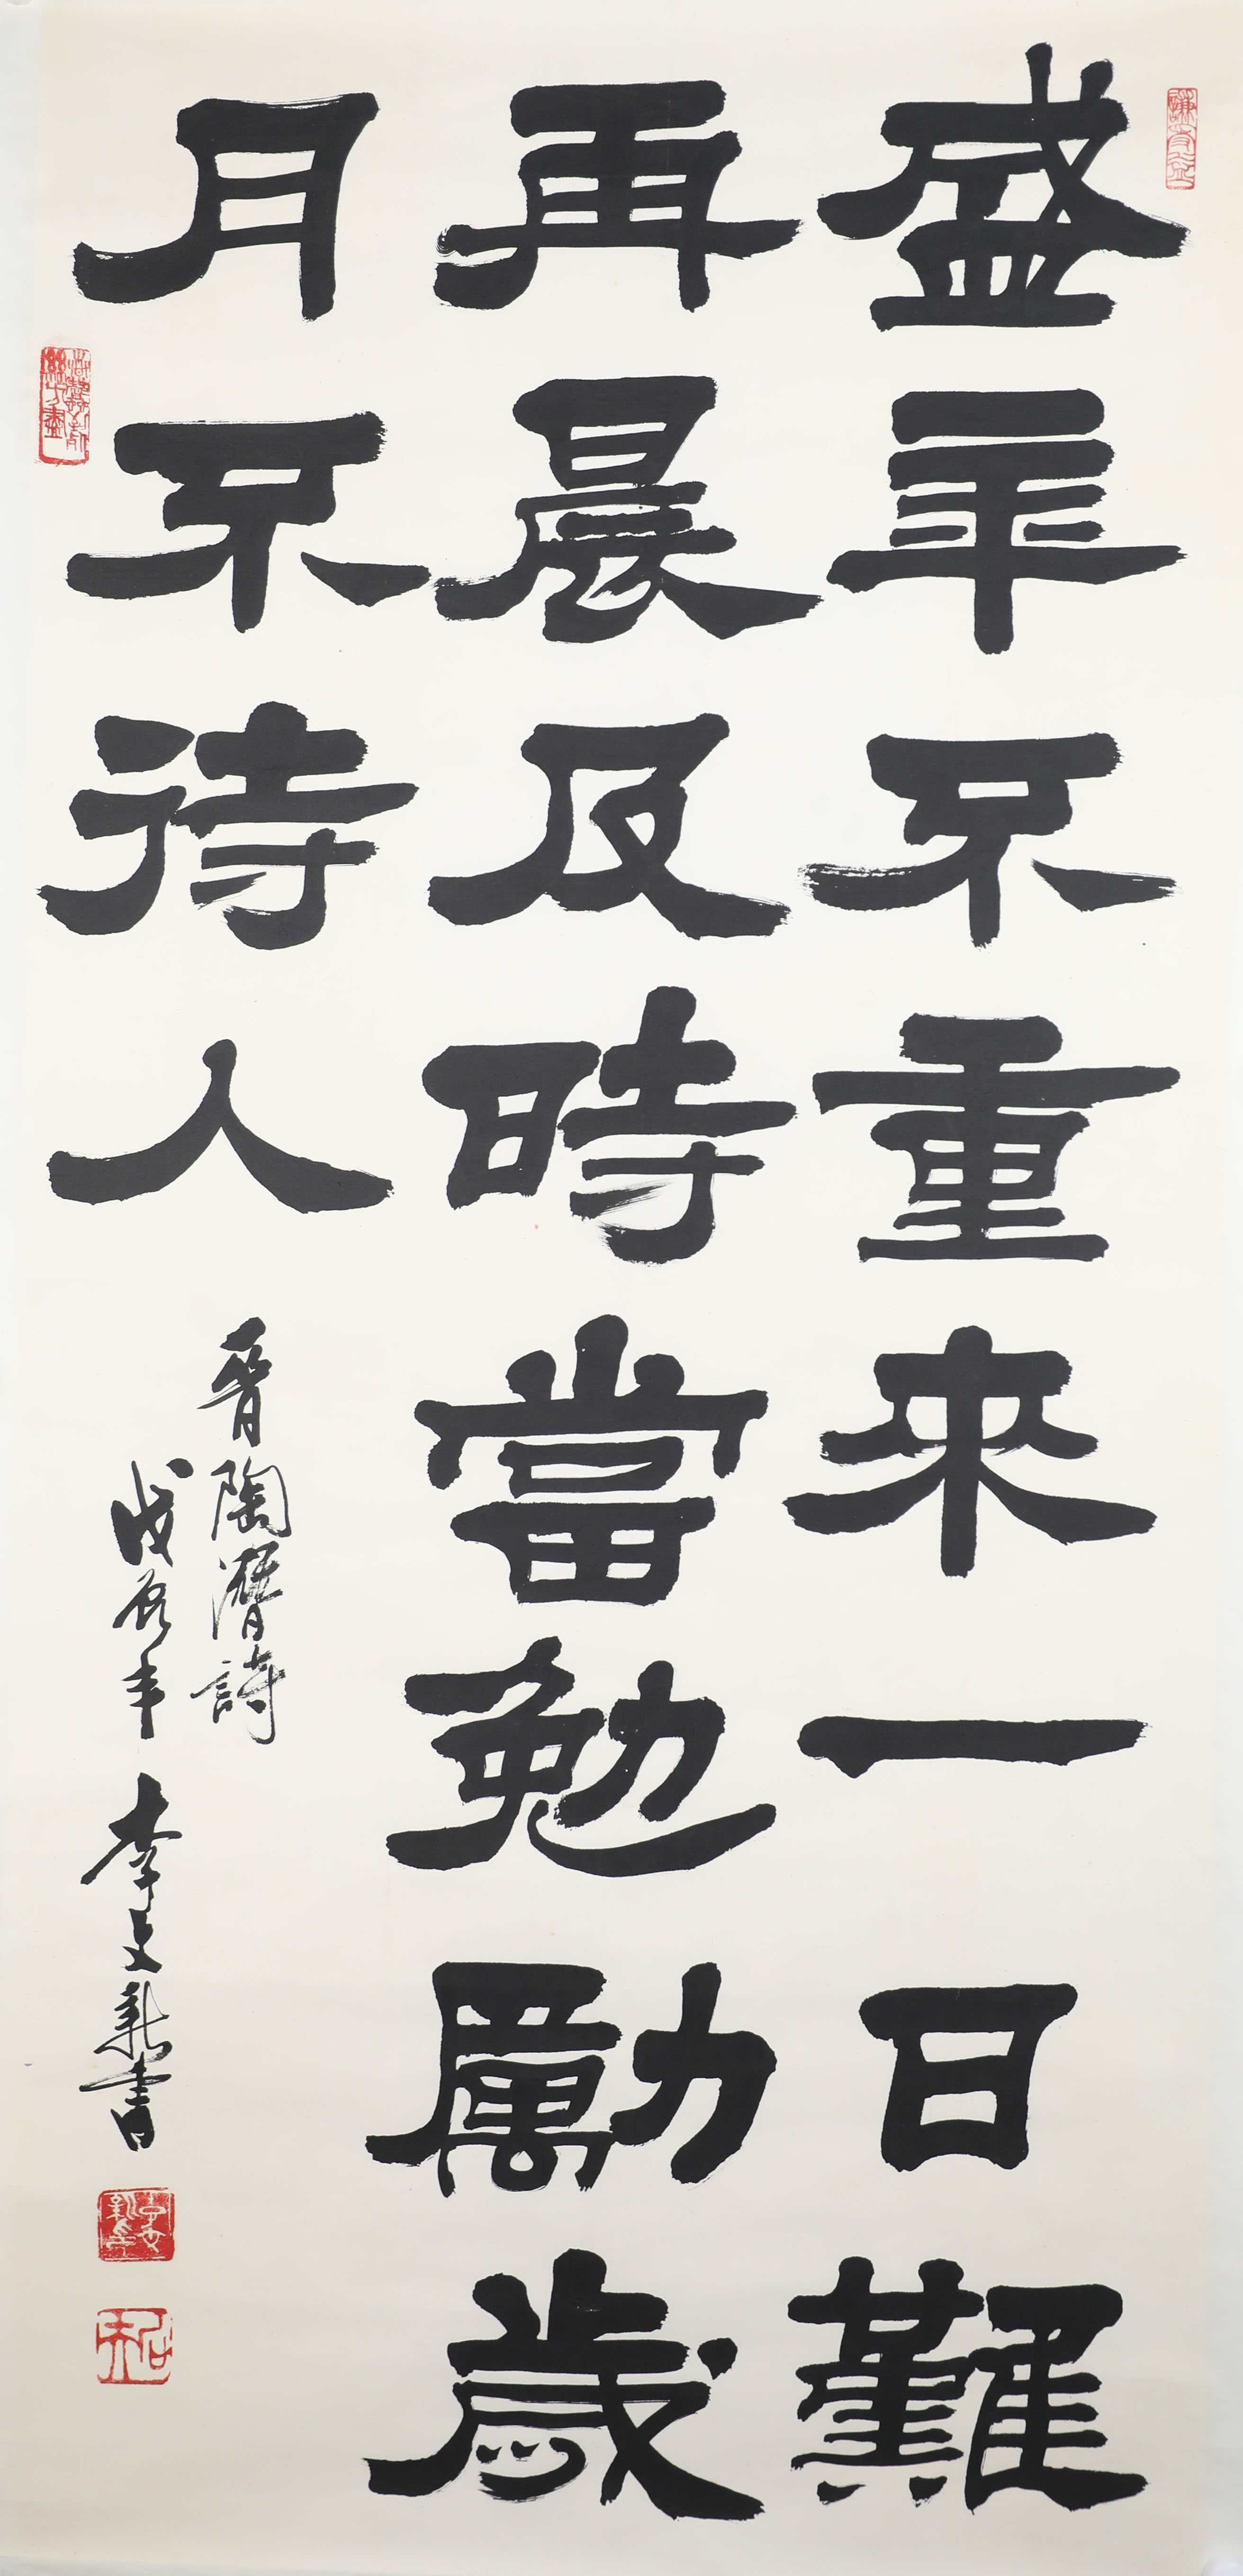 盛年不重来一日難
再晨及時當勉勵歲
月不待人
晋陶潛詩
戊辰年李文新書